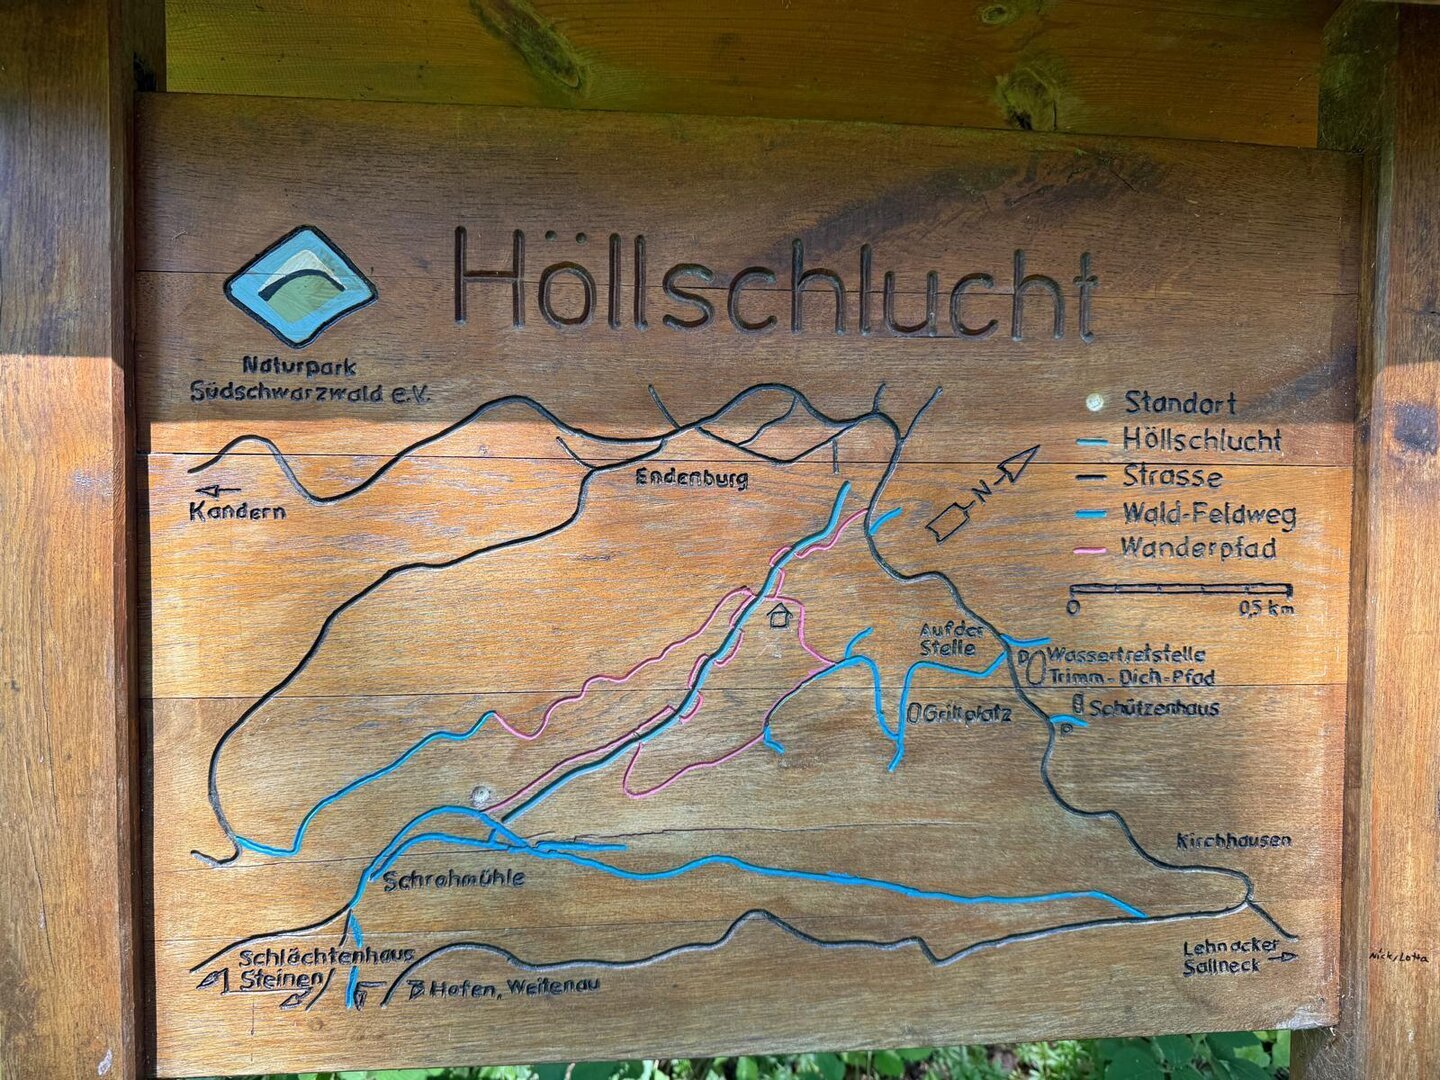 Höllschlucht
Naturpark
Südschwarzwald e.V.
Standort
Höllschlucht
Strasse
Wald-Feldweg
Wanderpfad
N
0
0,5 km
Kandern
Endenburg
Auf der
Stelle
P
Wassertretstelle
Trimm-Dich-Pfad
Grillplatz
Schützenhaus
P
Kirchhausen
Schrohmühle
Schlächtenhaus
Steinen
Hofen, Weitenau
Lehnacker
Sallneck
Nick, Lotta